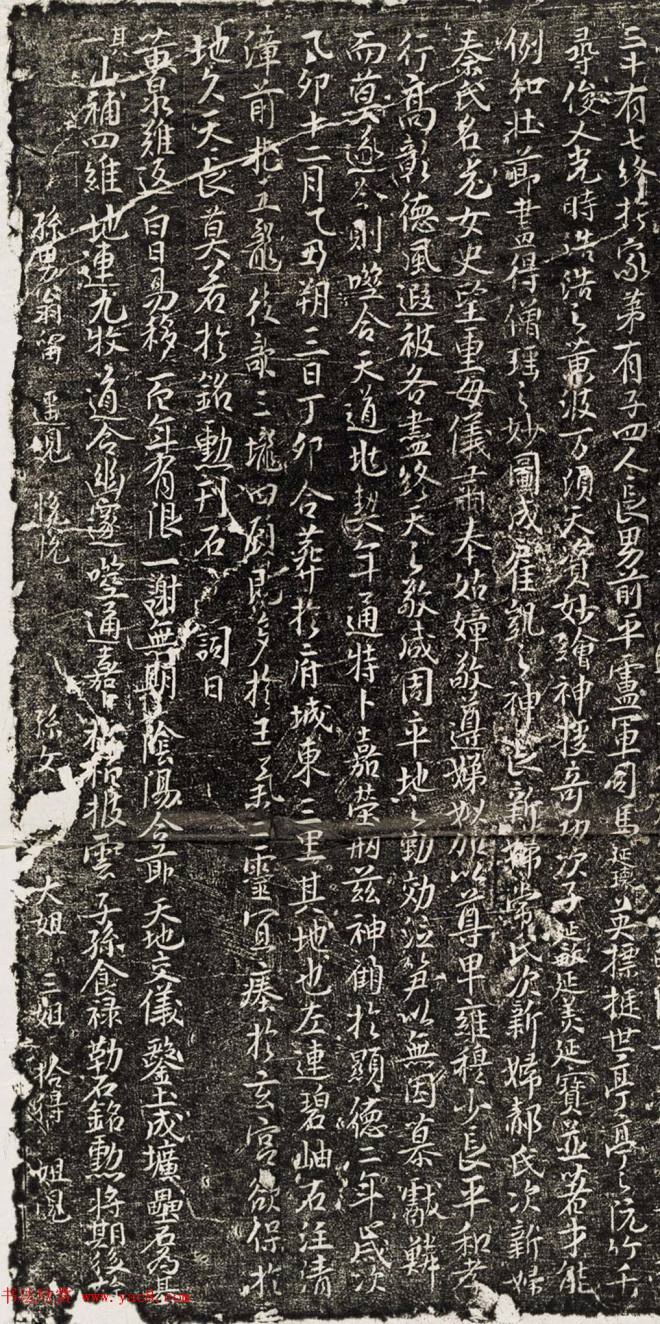 三十有七終於家第有子四人長男前平盧軍司馬延璝英標挺世亭亭之阮竹千
尋俊乂光時浩浩之黃波万頃天資妙繪神授奇功次子延敏延美延寶並著才能
例和壯節書得僧瑤之妙圖成崔凱之神長新婦常氏次新婦郝氏次新婦
秦氏名光女史望重母儀肅奉姑嫜敬遵娣姒加以尊卑雍穆少長平和孝
行高彰德風遐被各盡終天之敬咸因平地之勤効泣笋以無因慕獻鱗
而莫遂然則噬合天道地契年通特卜嘉榮用茲神俻於顯德二年歲次
乙卯十二月乙丑朔三日丁卯合葬於府城東三里其地也左連碧岫右注清
漳前枕五龍後歃三壠四顧既多於王氣二靈宜瘞於玄宮欲保於
地久天長莫若於銘勳刊石 詞曰
黃泉難返 白日易移 百年有限 一謝無期 陰陽合節 天地交儀 鑿土成壙 壘石為基
其一 山補四維 地連九牧 道合幽邃 噬通嘉卜 松栢披雲 子孫食祿 勒石銘勳 將期後
孫男翁 孫女 大姐 三姐 拾得 姐兒
书法欣赏 www.yac8.com